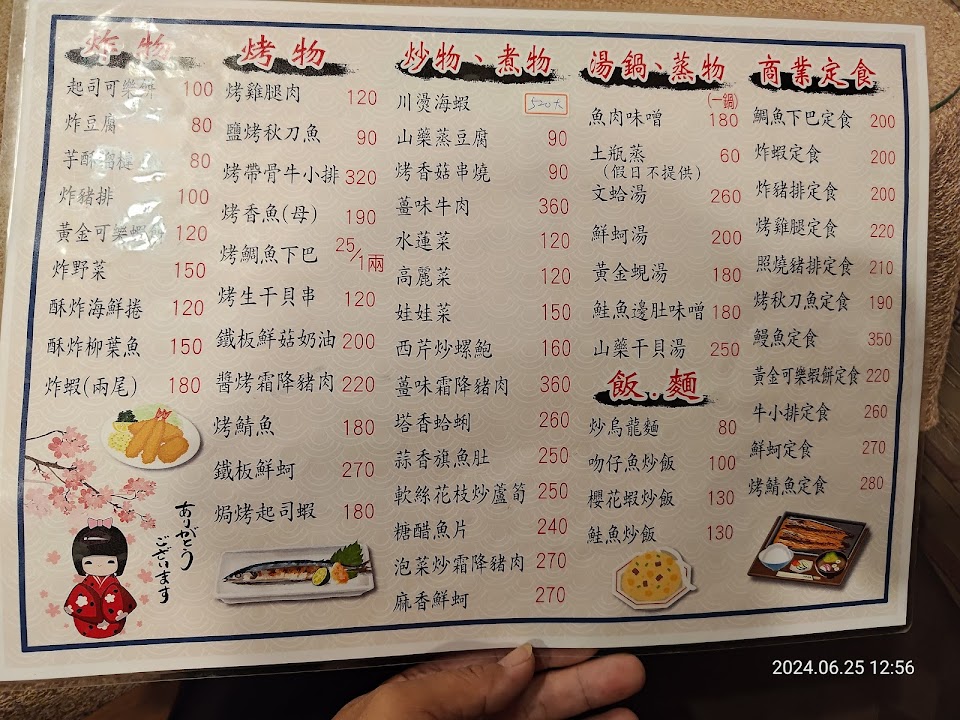 炸物
起司可樂餅 100
炸豆腐 80
芋酥 80
炸豬排 100
黃金可樂蝦餅 120
炸野菜 150
酥炸海鮮捲 120
酥炸柳葉魚 150
炸蝦(兩尾) 180
ありがとう
ございます
烤物
烤雞腿肉 120
鹽烤秋刀魚 90
烤帶骨牛小排 320
烤香魚(母) 190
烤鯛魚下巴 25/1兩
烤生干貝串 120
鐵板鮮菇奶油 200
醬烤霜降豬肉 220
烤鯖魚 180
鐵板鮮蚵 270
焗烤起司蝦 180
炒物、煮物
川燙海蝦 520大
山藥蒸豆腐 90
烤香菇串燒 90
薑味牛肉 360
水蓮菜 120
高麗菜 120
娃娃菜 150
西芹炒螺鮑 160
薑味霜降豬肉 360
塔香蛤蜊 260
蒜香旗魚肚 250
軟絲花枝炒蘆筍 250
糖醋魚片 240
泡菜炒霜降豬肉 270
麻香鮮蚵 270
湯鍋、蒸物
魚肉味噌 (一鍋) 180
土瓶蒸 60
(假日不提供)
文蛤湯 260
鮮蚵湯 200
黃金蜆湯 180
鮭魚邊肚味噌 180
山藥干貝湯 250
飯.麵
炒烏龍麵 80
吻仔魚炒飯 100
櫻花蝦炒飯 130
鮭魚炒飯 130
商業定食
鯛魚下巴定食 200
炸蝦定食 200
炸豬排定食 200
烤雞腿定食 220
照燒豬排定食 210
烤秋刀魚定食 190
鰻魚定食 350
黃金可樂蝦餅定食 220
牛小排定食 260
鮮蚵定食 270
烤鯖魚定食 280
2024.06.25 12:56